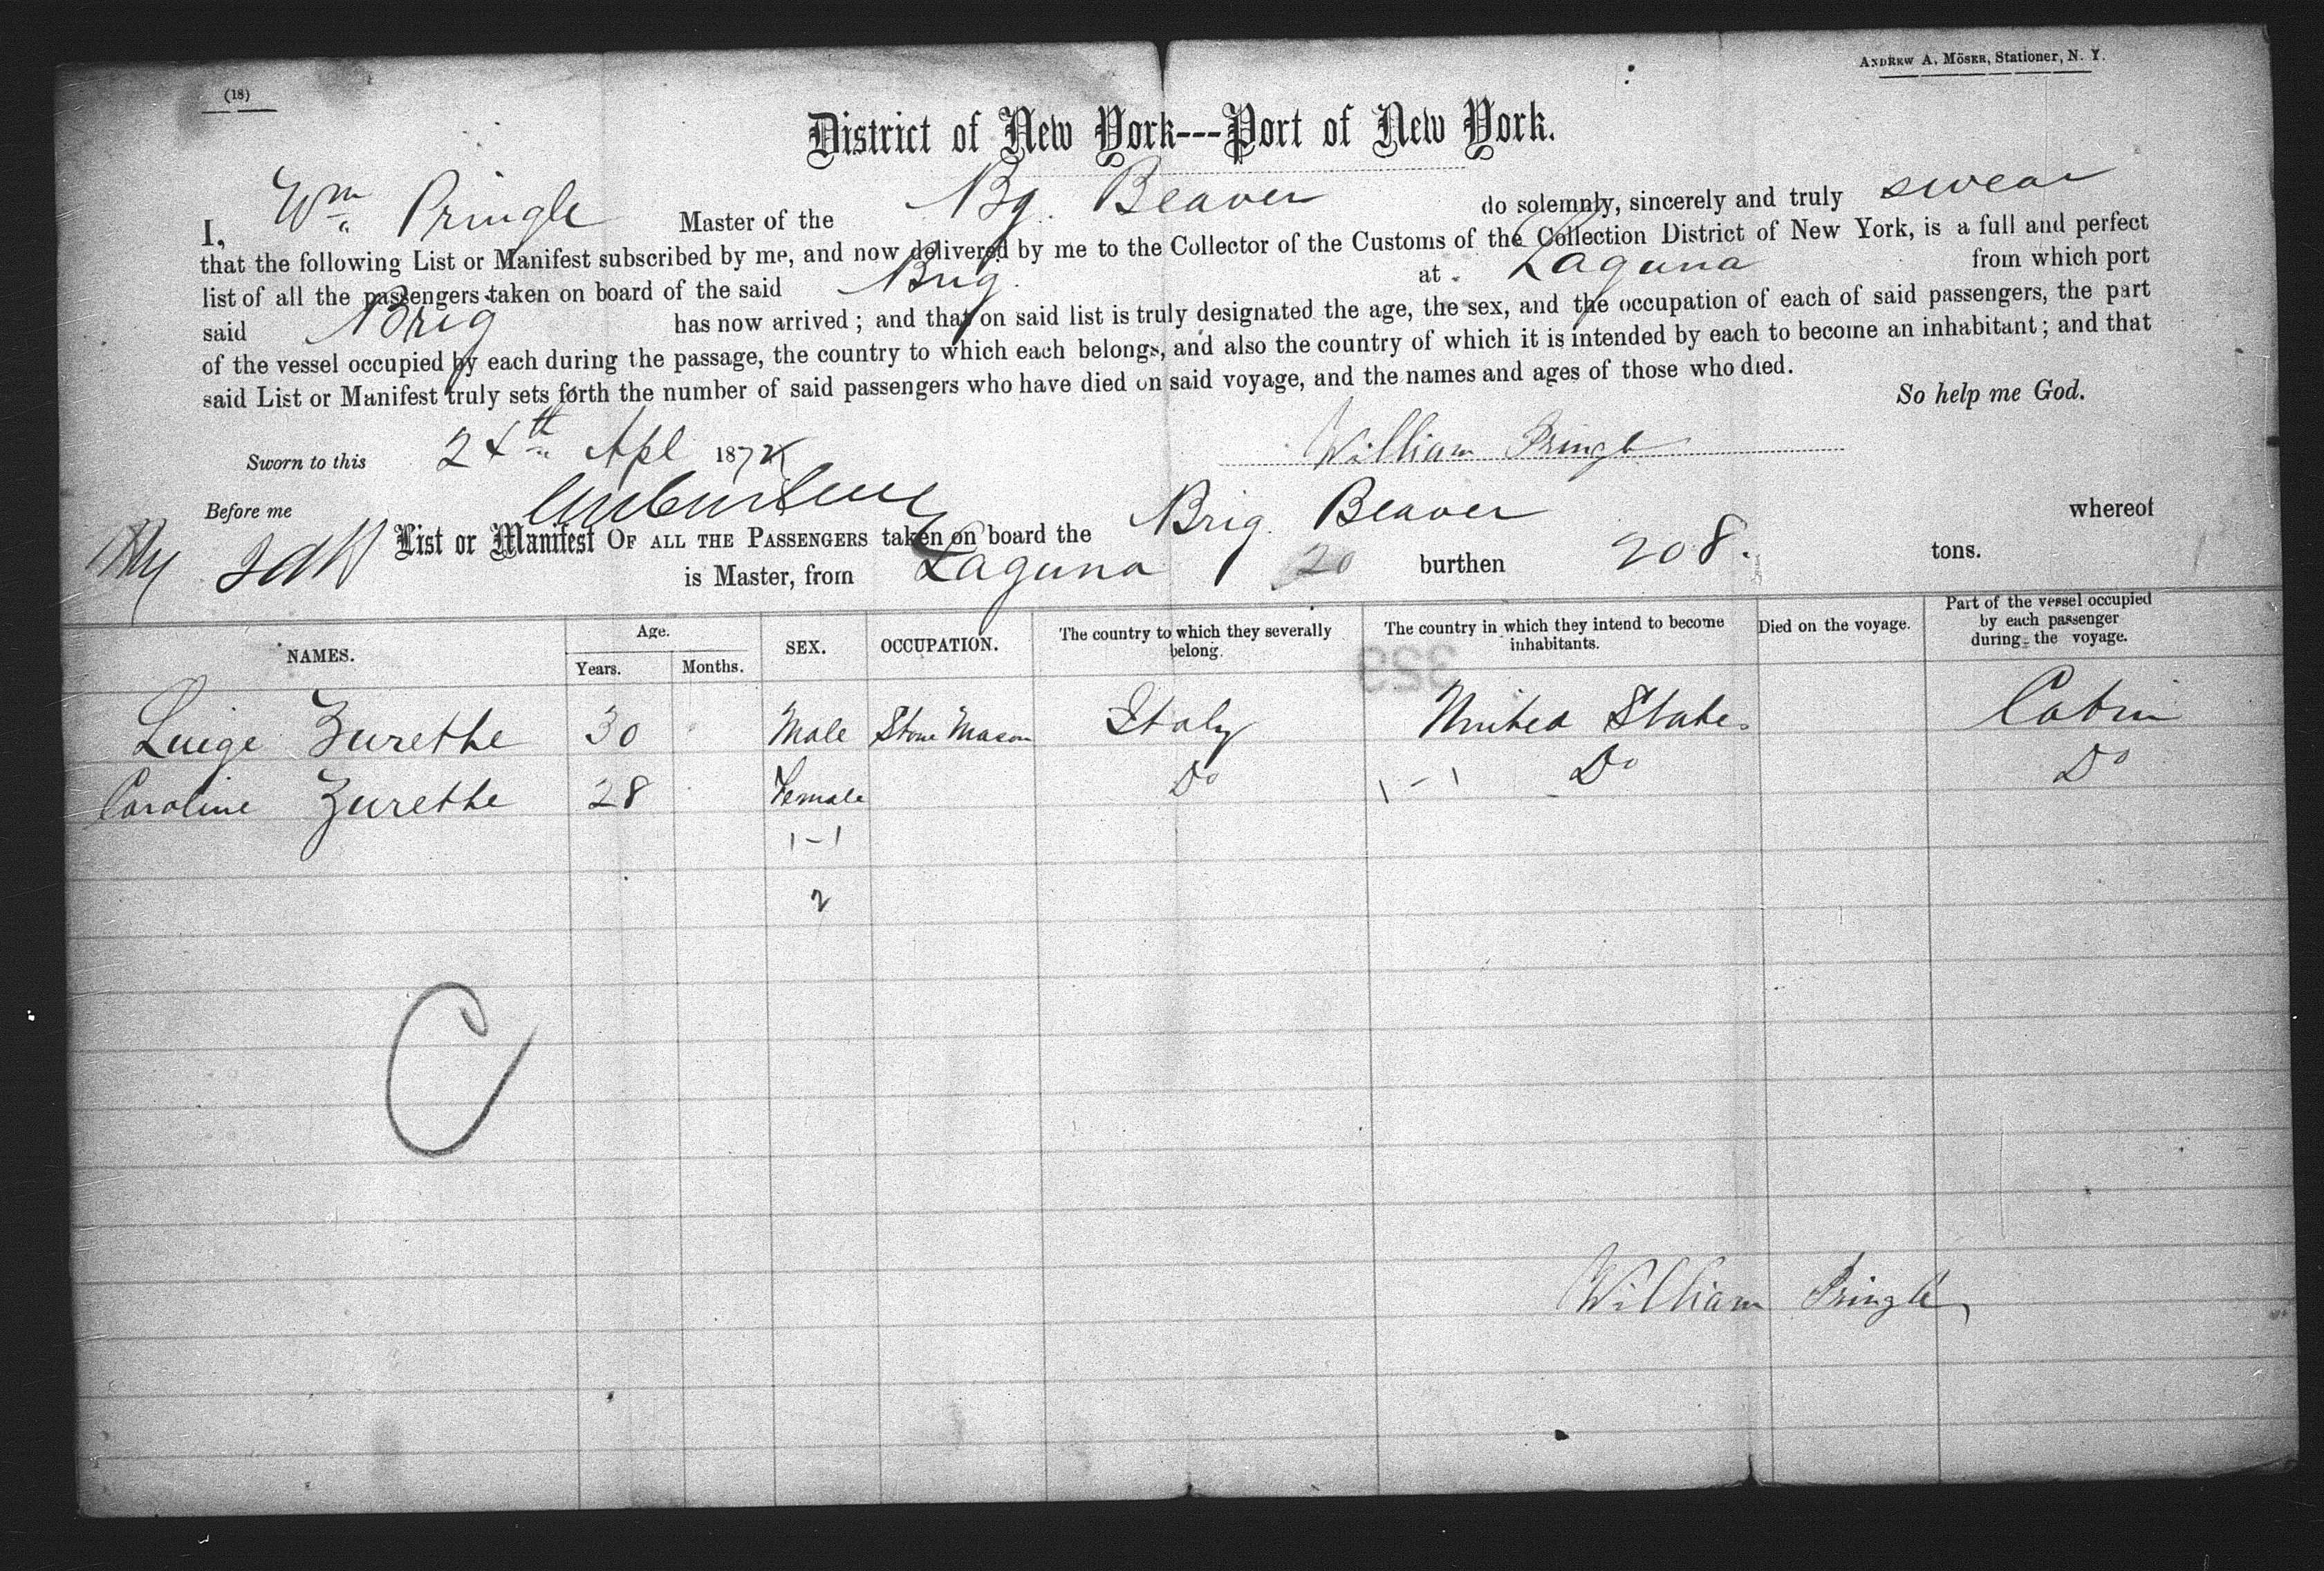 (18)
ANDREW A. MÖSER, Stationer, N. Y.
District of New York---Port of New York.
I, Wm Pringle Master of the Bg. Beaver do solemnly, sincerely and truly swear
that the following List or Manifest subscribed by me, and now delivered by me to the Collector of the Customs of the Collection District of New York, is a full and perfect
list of all the passengers taken on board of the said Brig. at Laguna from which port
said Brig has now arrived; and that on said list is truly designated the age, the sex, and the occupation of each of said passengers, the part
of the vessel occupied by each during the passage, the country to which each belongs, and also the country of which it is intended by each to become an inhabitant; and that
said List or Manifest truly sets forth the number of said passengers who have died on said voyage, and the names and ages of those who died.
So help me God.
Sworn to this 24th Apl 187
William Pringle
Before me
List or Manifest OF ALL THE PASSENGERS taken on board the Brig. Beaver whereof
is Master, from Laguna 20 burthen 208. tons.
NAMES. Age. Years. Months. SEX. OCCUPATION. The country to which they severally belong. The country in which they intend to become inhabitants. Died on the voyage. Part of the vessel occupied by each passenger during the voyage.
353
Luige Zurethe 30 Male Stone Mason Italy United States Cabin
Caroline Zurethe 28 Female Do 1-1 Do Do
1-1
2
C
William Pringle